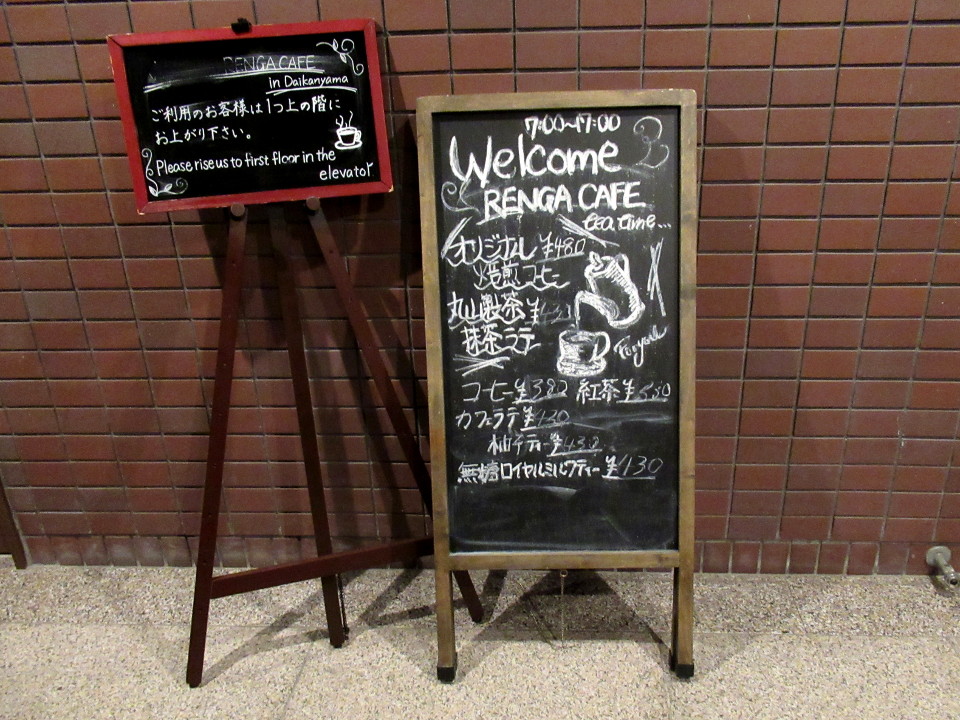 RENGA CAFE
in Daikanyama
ご利用のお客様は1つ上の階に
お上がり下さい。
Please rise us to first floor in the
elevator
7:00~17:00
Welcome
RENGA CAFE
tea time...
オリジナル ¥480
焙煎コーヒー
丸山製茶 ¥430
抹茶ラテ
コーヒー ¥380 紅茶 ¥380
カフェラテ ¥430
柚子ティー ¥430
無糖ロイヤルミルクティー ¥430